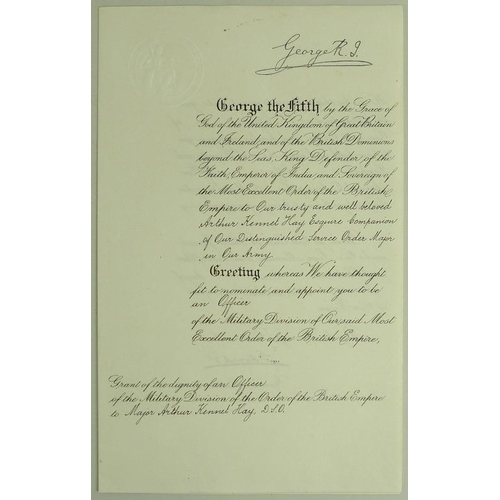 George R.I.
George the Fifth by the Grace of
God of the United Kingdom of Great Britain
and Ireland, and of the British Dominions
beyond the Seas, King Defender of the
Faith, Emperor of India and Sovereign of
the Most Excellent Order of the British
Empire to Our trusty and well beloved
Arthur Kennel Hay Esquire Companion
of Our Distinguished Service Order Major
in Our Army
Greeting whereas We have thought
fit to nominate and appoint you to be
an Officer
of the Military Division of Our said Most
Excellent Order of the British Empire,
Grant of the dignity of an Officer
of the Military Division of the Order of the British Empire
to Major Arthur Kennel Hay, D.S.O.